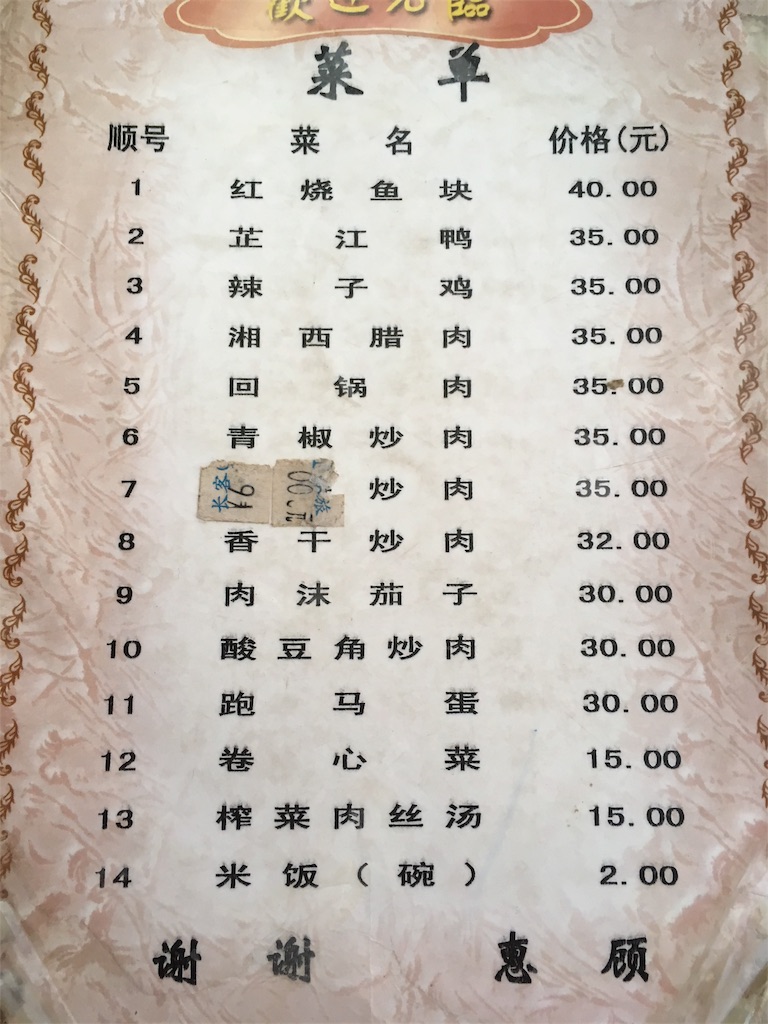 歡迎光臨
菜单
顺号 菜名 价格(元)
1 红烧鱼块 40.00
2 芷江鸭 35.00
3 辣子鸡 35.00
4 湘西腊肉 35.00
5 回锅肉 35.00
6 青椒炒肉 35.00
7 炒肉 35.00
8 香干炒肉 32.00
9 肉沫茄子 30.00
10 酸豆角炒肉 30.00
11 跑马蛋 30.00
12 卷心菜 15.00
13 榨菜肉丝汤 15.00
14 米饭(碗) 2.00
谢谢 惠顾